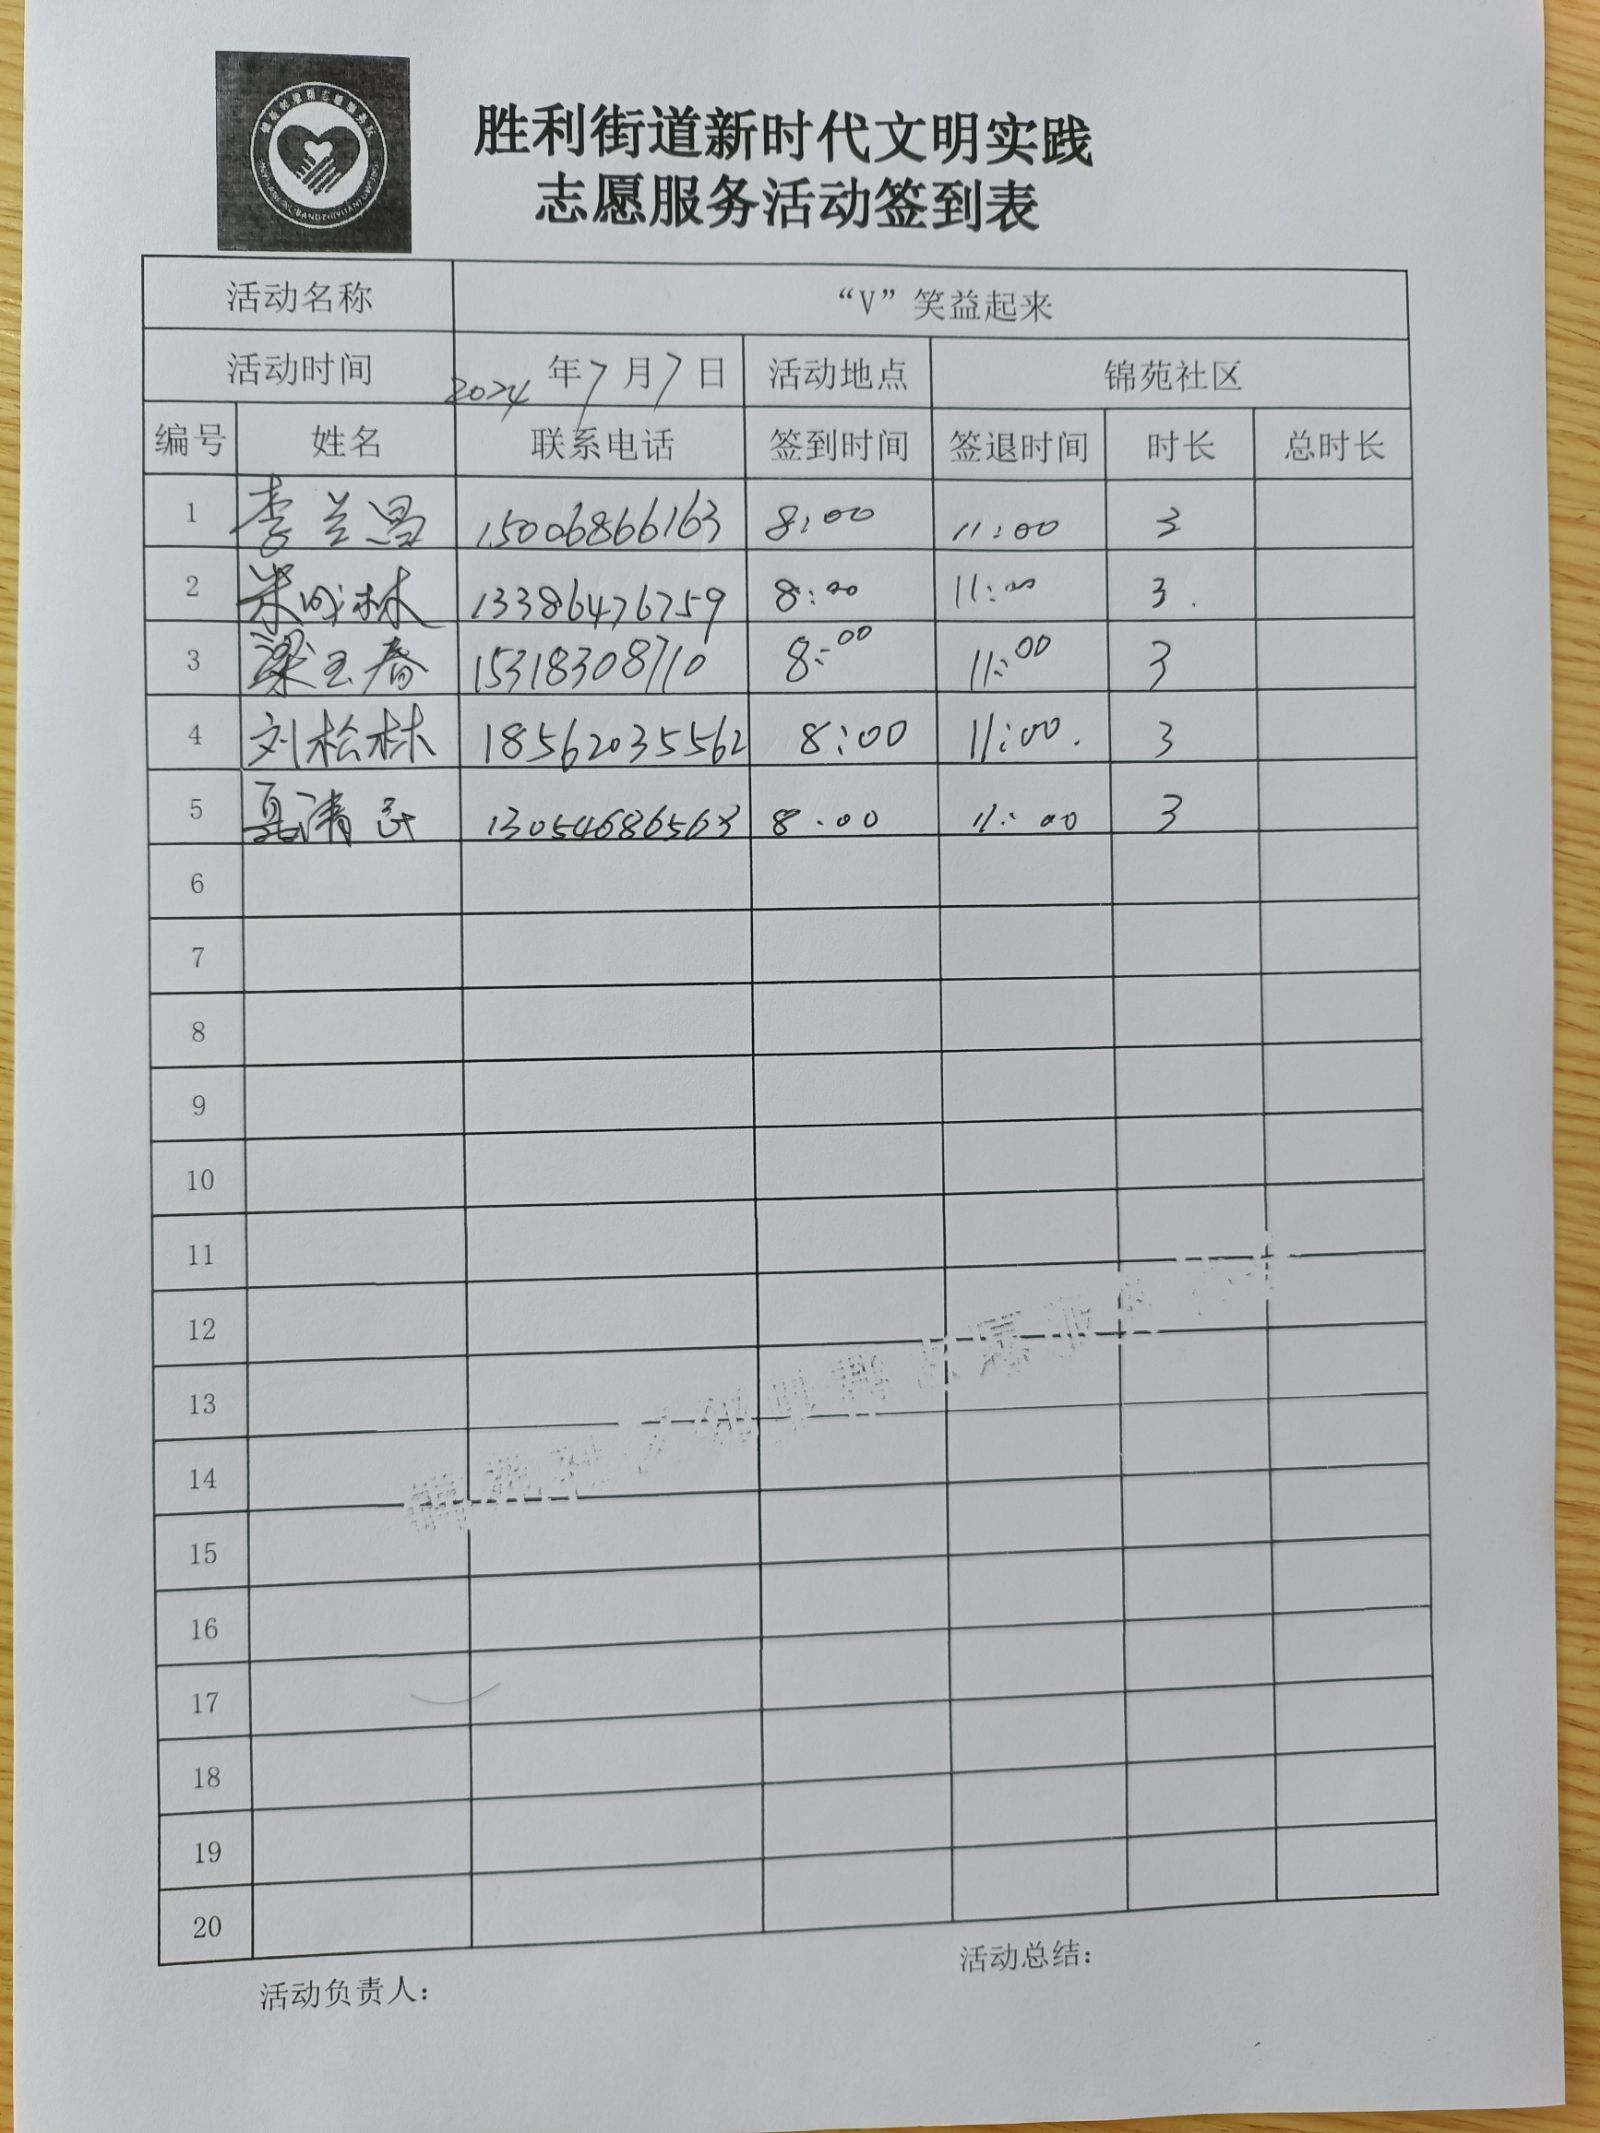 胜利街道新时代文明实践
志愿服务活动签到表
活动名称 “V”笑益起来
活动时间 2024 年 7 月 7 日 活动地点 锦苑社区
编号 姓名 联系电话 签到时间 签退时间 时长 总时长
1 李兰昌 15006866163 8:00 11:00 3
2 13386476759 8:00 11:00 3.
3 梁玉春 15318308710 8:00 11:00 3
4 刘松林 18562035562 8:00 11:00. 3
5 聂清 13054686563 8:00 11:00 3
6
7
8
9
10
11
12
13
14
15
16
17
18
19
20
活动负责人: 活动总结: